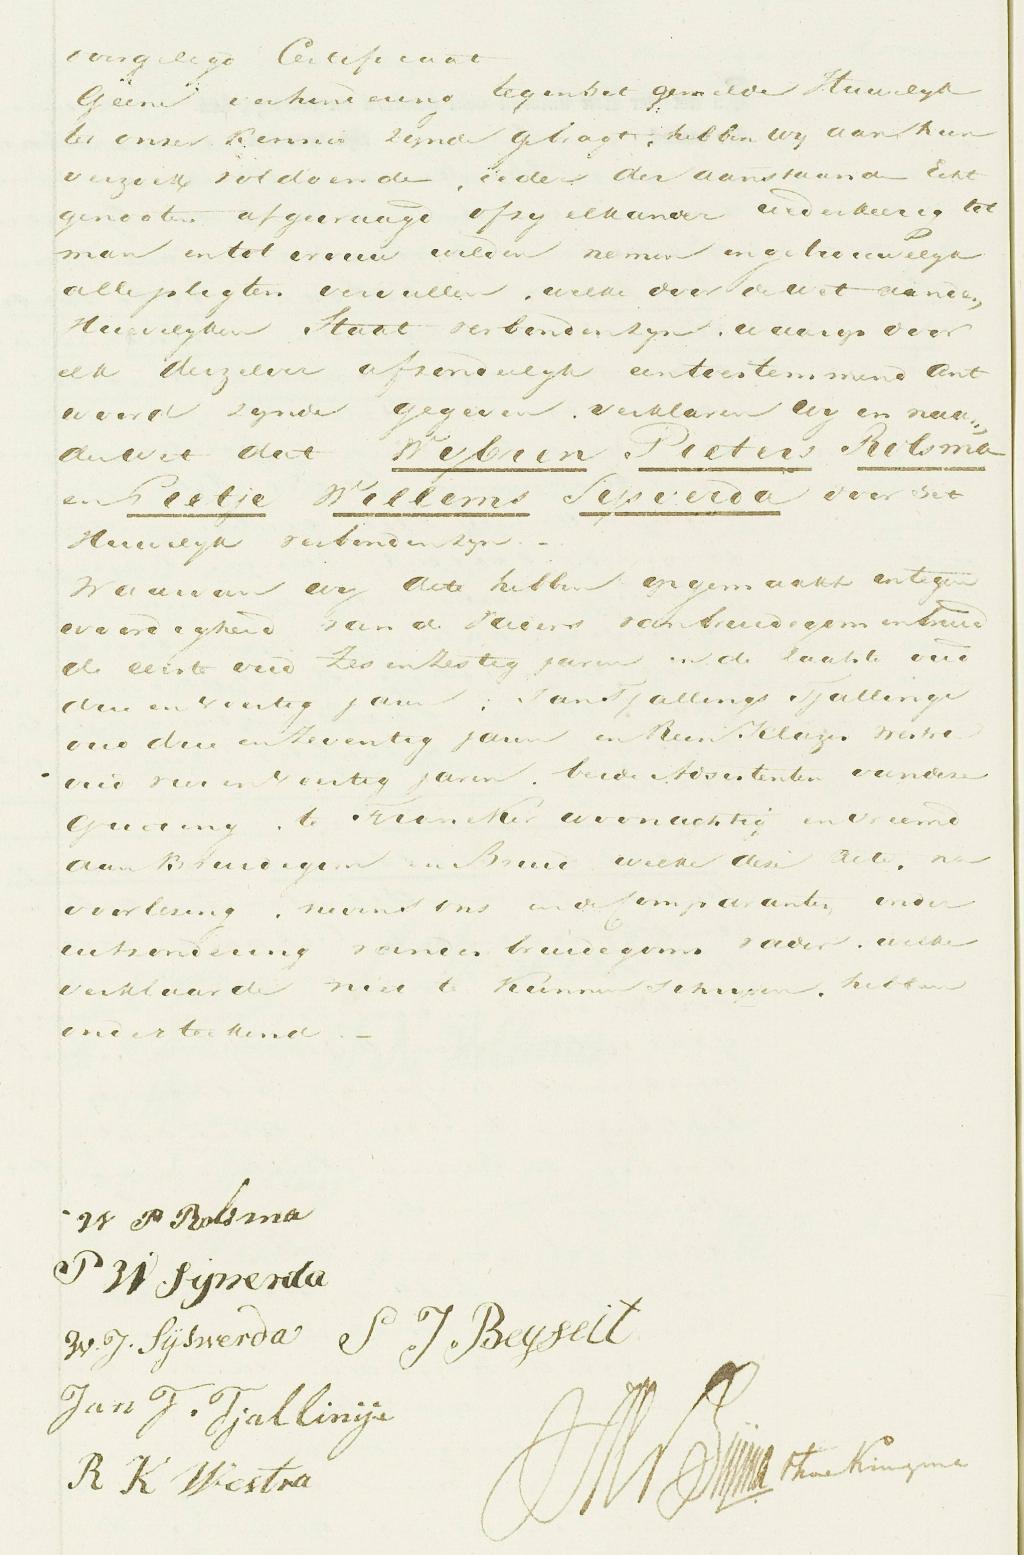 overgelegd Certificaat
Geene verhindering tegen het gemelde Huwelyk
ter onser kennis zynde gebragt, hebben wy aan hun
verzoek voldoende, ieder der aanstaande Echt
genooten afgevraagd of zy elkander wederkeerig tot
man en tot vrouw wilden nemen en getrouwelyk
alle pligten vervullen, welke door de wet aan den
Huwelyken Staat verbonden zyn, waarop door
elk derzelver afzonderlyk een toestemmend Ant
woord zynde gegeven, verklaren wy in naam
der wet dat Wybren Pieters Rolsma
en Pietje Willems Sijswerda door het
Huwelyk verbonden zyn. –
Waarvan wy Acte hebben opgemaakt in tegen
woordigheid van de Vaders van bruidegom en bruid
de eerste oud Zes en Zestig jaren en de laatste oud
drie en veertig jaren, Jan Tjallings Tjallingii
oud drie en Zeventig jaren en Rein Klazes Westra
oud en veertig jaren, beide Adsistenten van deze
te Franeker woonachtig en vreemd
aan Bruidegom en Bruid welke deze Acte, na
voorlesing, nevens ons en de Comparanten, onder
uitzondering van den bruidegoms vader, welke
verklaarde niet te kunnen schryven, hebben
onderteekend. –
W P Rolsma
P W Sijswerda
W. J. Sijswerda S J. Beyseit
Jan T. Tjallingii
R K Westra
Kingma